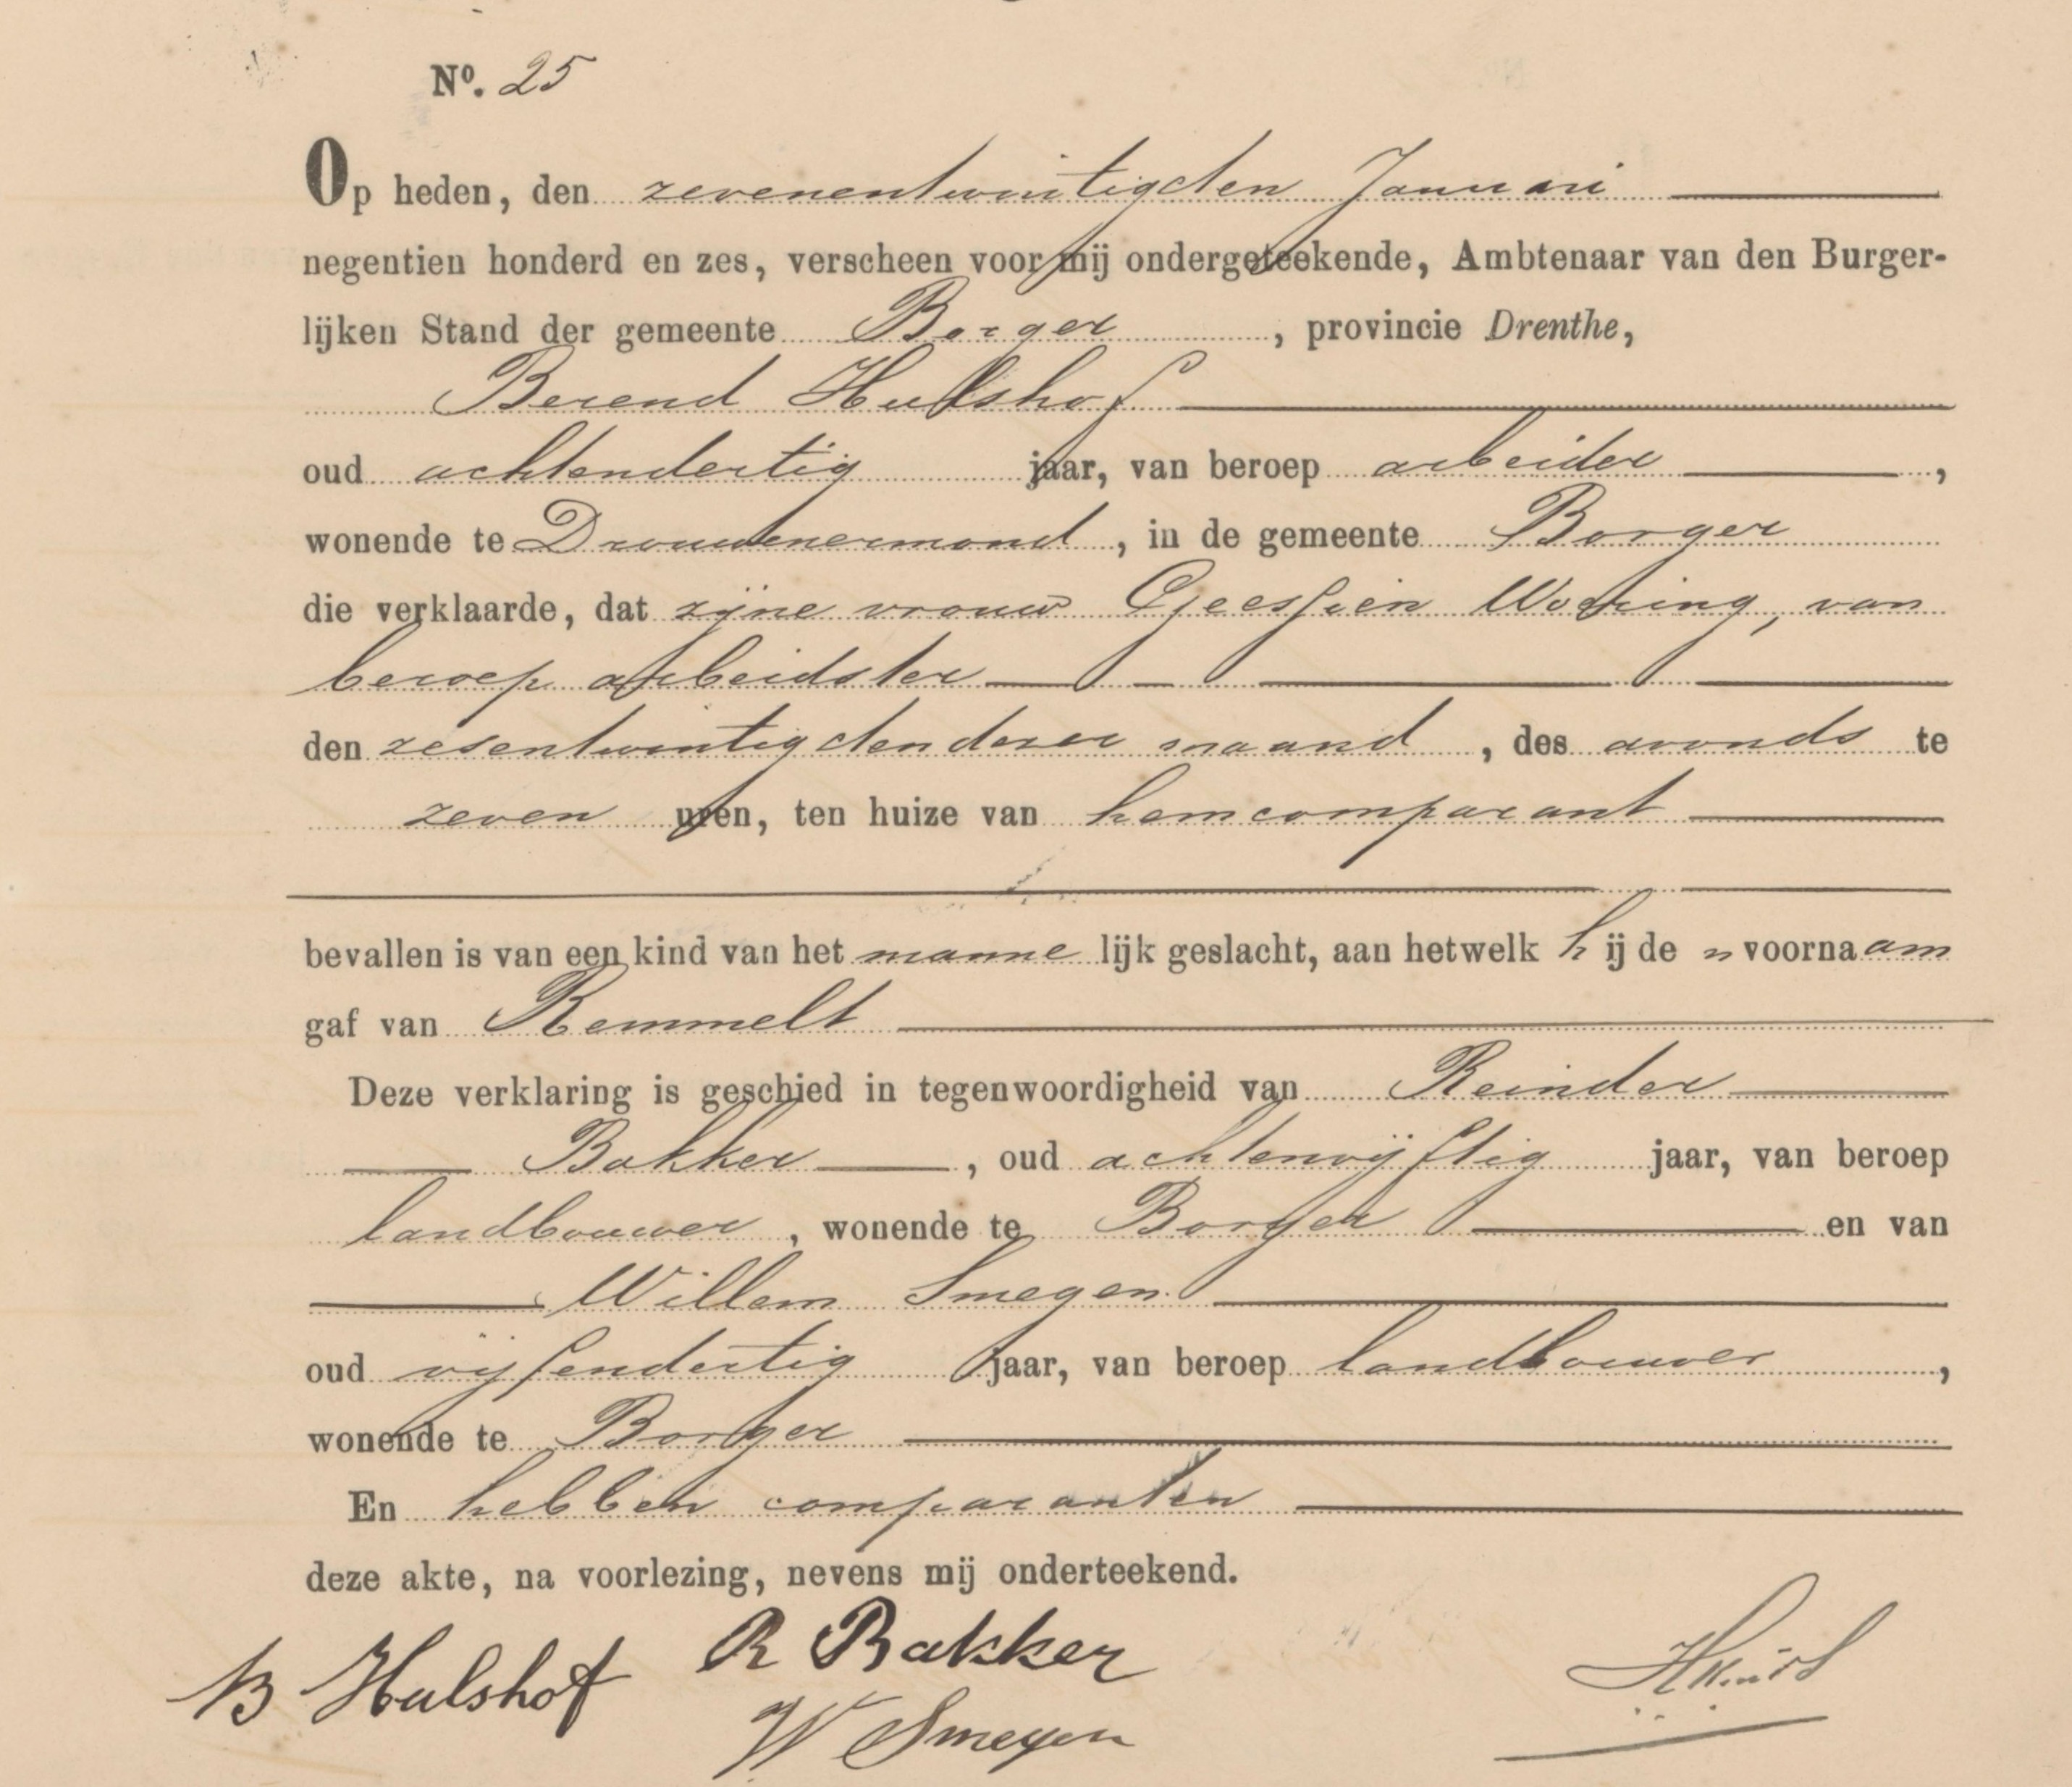 Nº. 25
Op heden, den zevenentwintigsten Januari
negentien honderd en zes, verscheen voor mij ondergeteekende, Ambtenaar van den Burger-
lijken Stand der gemeente Borger, provincie Drenthe,
Berend Hulshof
oud achtendertig jaar, van beroep arbeider,
wonende te Drouwenermond, in de gemeente Borger
die verklaarde, dat zijne vrouw Geessien Woering, van
beroep arbeidster
den zesentwintigsten dezer maand, des avonds te
zeven uren, ten huize van hem comparant
bevallen is van een kind van het mannelijk geslacht, aan hetwelk hij den voornaam
gaf van Remmelt
Deze verklaring is geschied in tegenwoordigheid van Reinder
Bakker, oud achtenvijftig jaar, van beroep
landbouwer, wonende te Borger en van
Willem Smegen
oud vijfendertig jaar, van beroep landbouwer,
wonende te Borger
En hebben comparanten
deze akte, na voorlezing, nevens mij onderteekend.
B Hulshof R Bakker
W Smegen